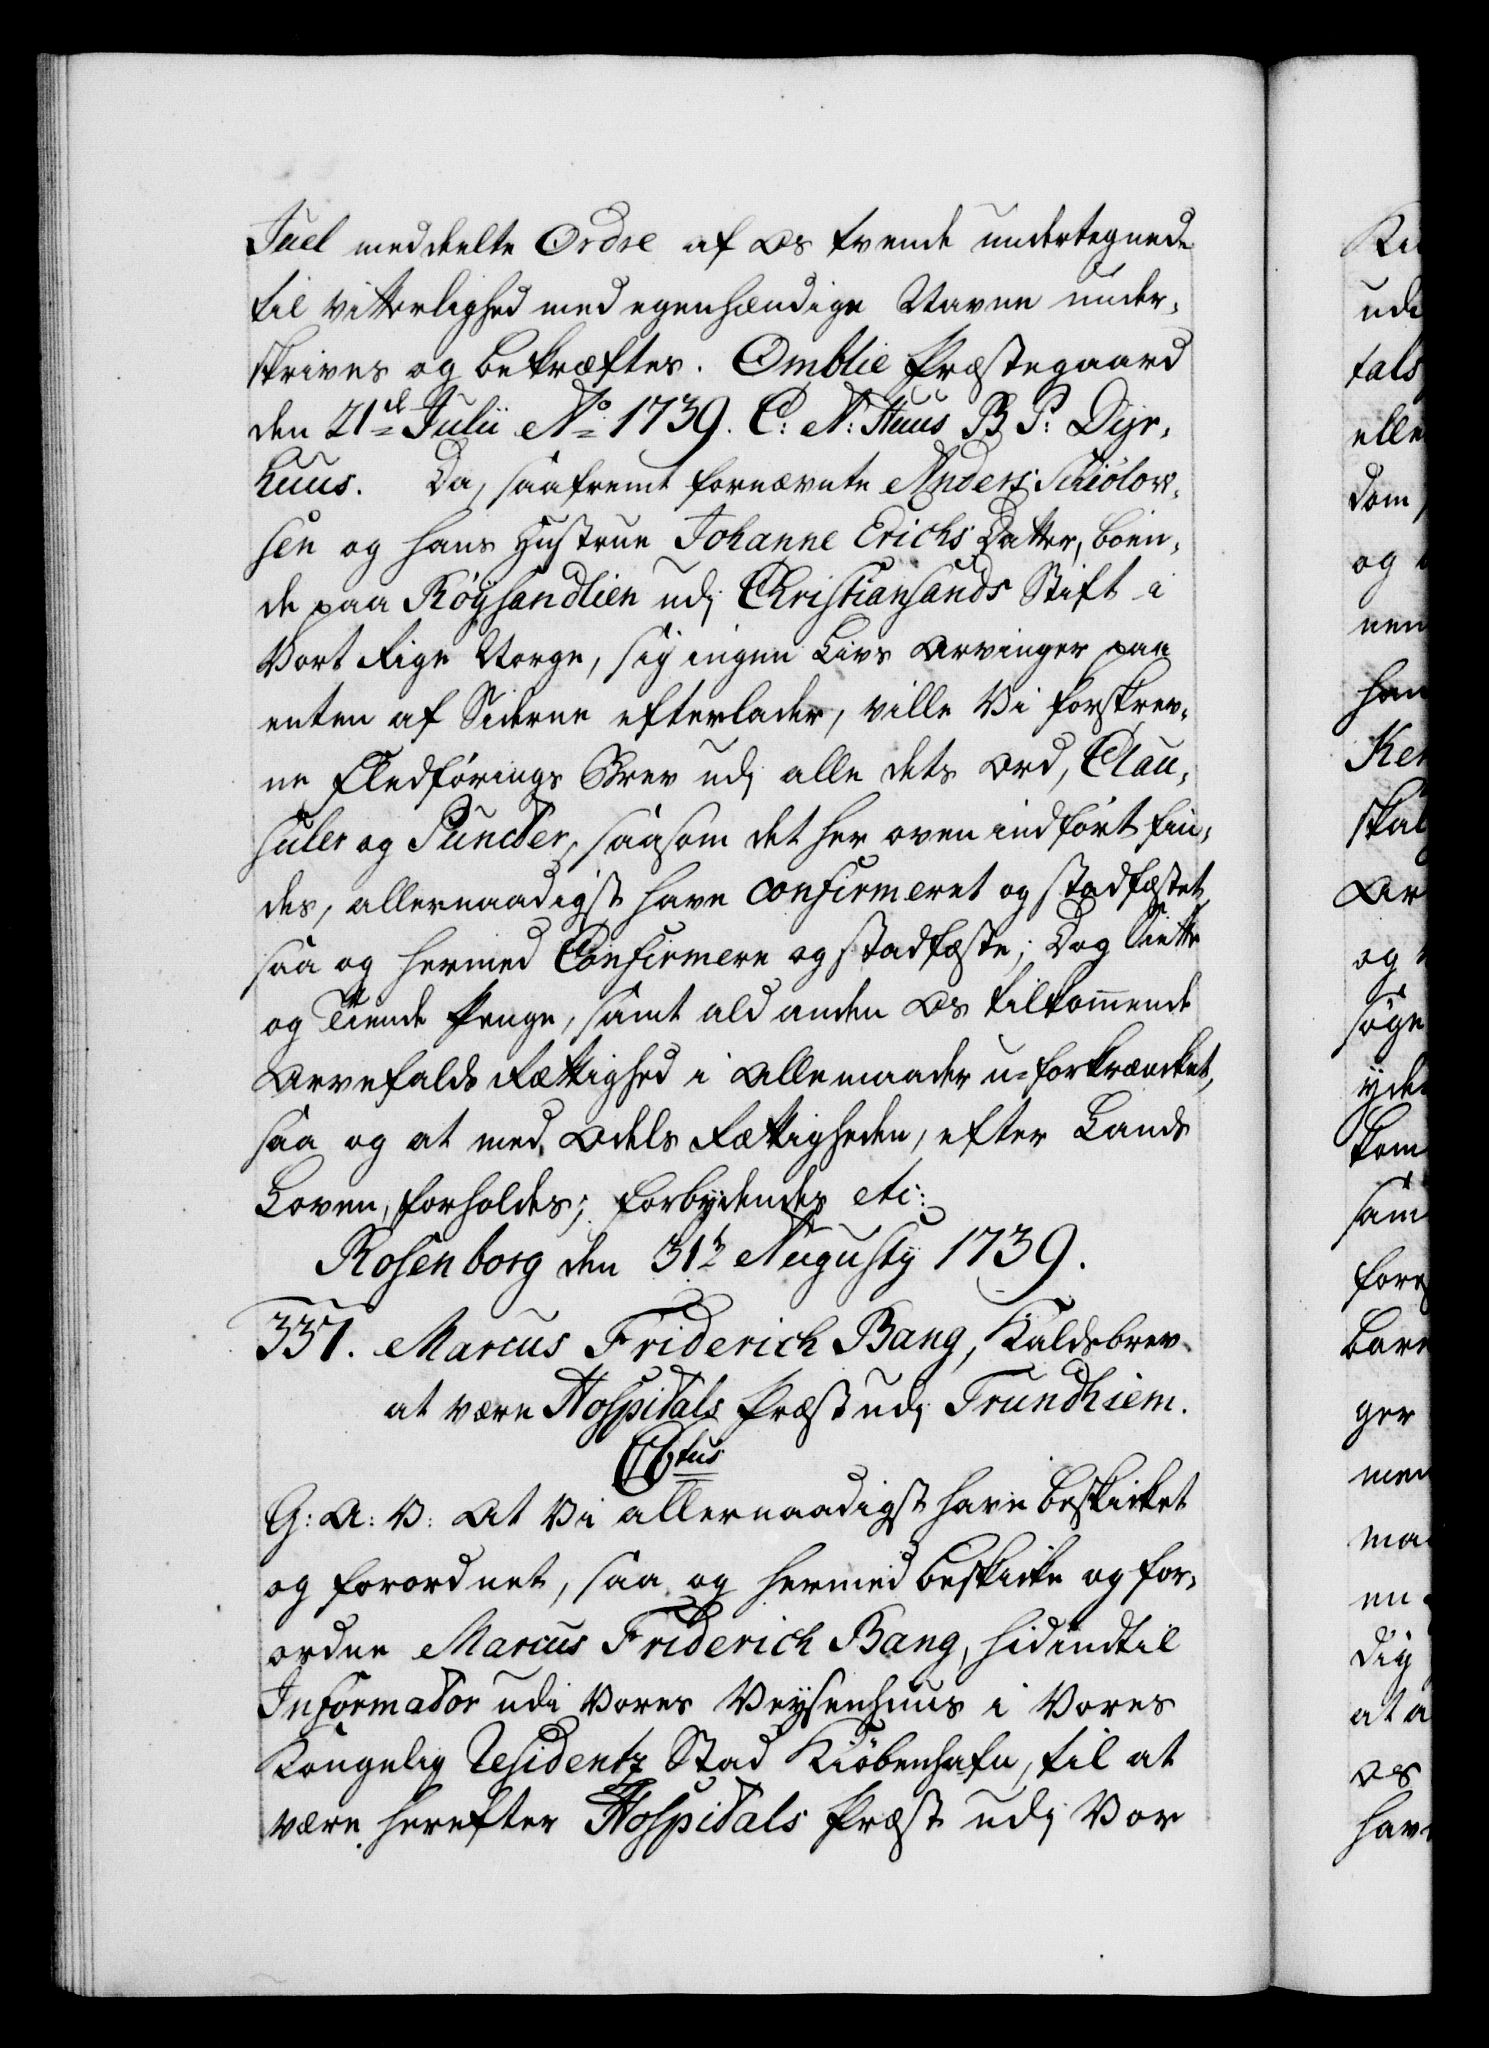 Juel meddeelte Ordre af os tvende undertegnede
til vitterlighed med egenhændige Navne under,
skrives og bekræftes. Omblie Præstegaard
den 21de Julii Ao 1739. C: N: Huus B P: Dyr,
huus. Da, saafremt fornævnte Anders Schiólow,
sen og hans Hustrue Johanne Erichs Datter, boen,
de paa Röÿsandlien udj Christiansands Stift i
Vort Rige Norge, sig ingen Livs Arvinger paa
enten af Siderne efterlader, ville Vi forskrev,
ne Fledførings Brev udj alle dets Ord, Clau,
suler og Puncter, saasom det her oven indført fin,
des, allernaadigst have confirmeret og stadfæstet,
saa og hermed Confirmere og stadfæste; Dog Siette
og Tiende Penge, samt ald anden Os tilkommende
Arvefalds Rettighed i Allemaader u-forkrænket,
saa og at med Odels Rettigheden, efter Lands
Loven, forholdes; Forbydendes etc:
Rosenborg den 31te Augustÿ 1739.
337. Marcus Friderich Bang, Kaldsbrev
at være Hospitals Præst udj Trundhiem.
C6tus
G: A: V: At Vi allernaadigst have beskicket
og forordnet, saa og hermed beskicke og for,
ordne Marcus Friderich Bang, hidindtil
Informator udi Vores Veÿsenhuus i Vores
Kongelig Residentz Stad Kiöbenhafn, til at
være herefter Hospitals Præst udj Vor